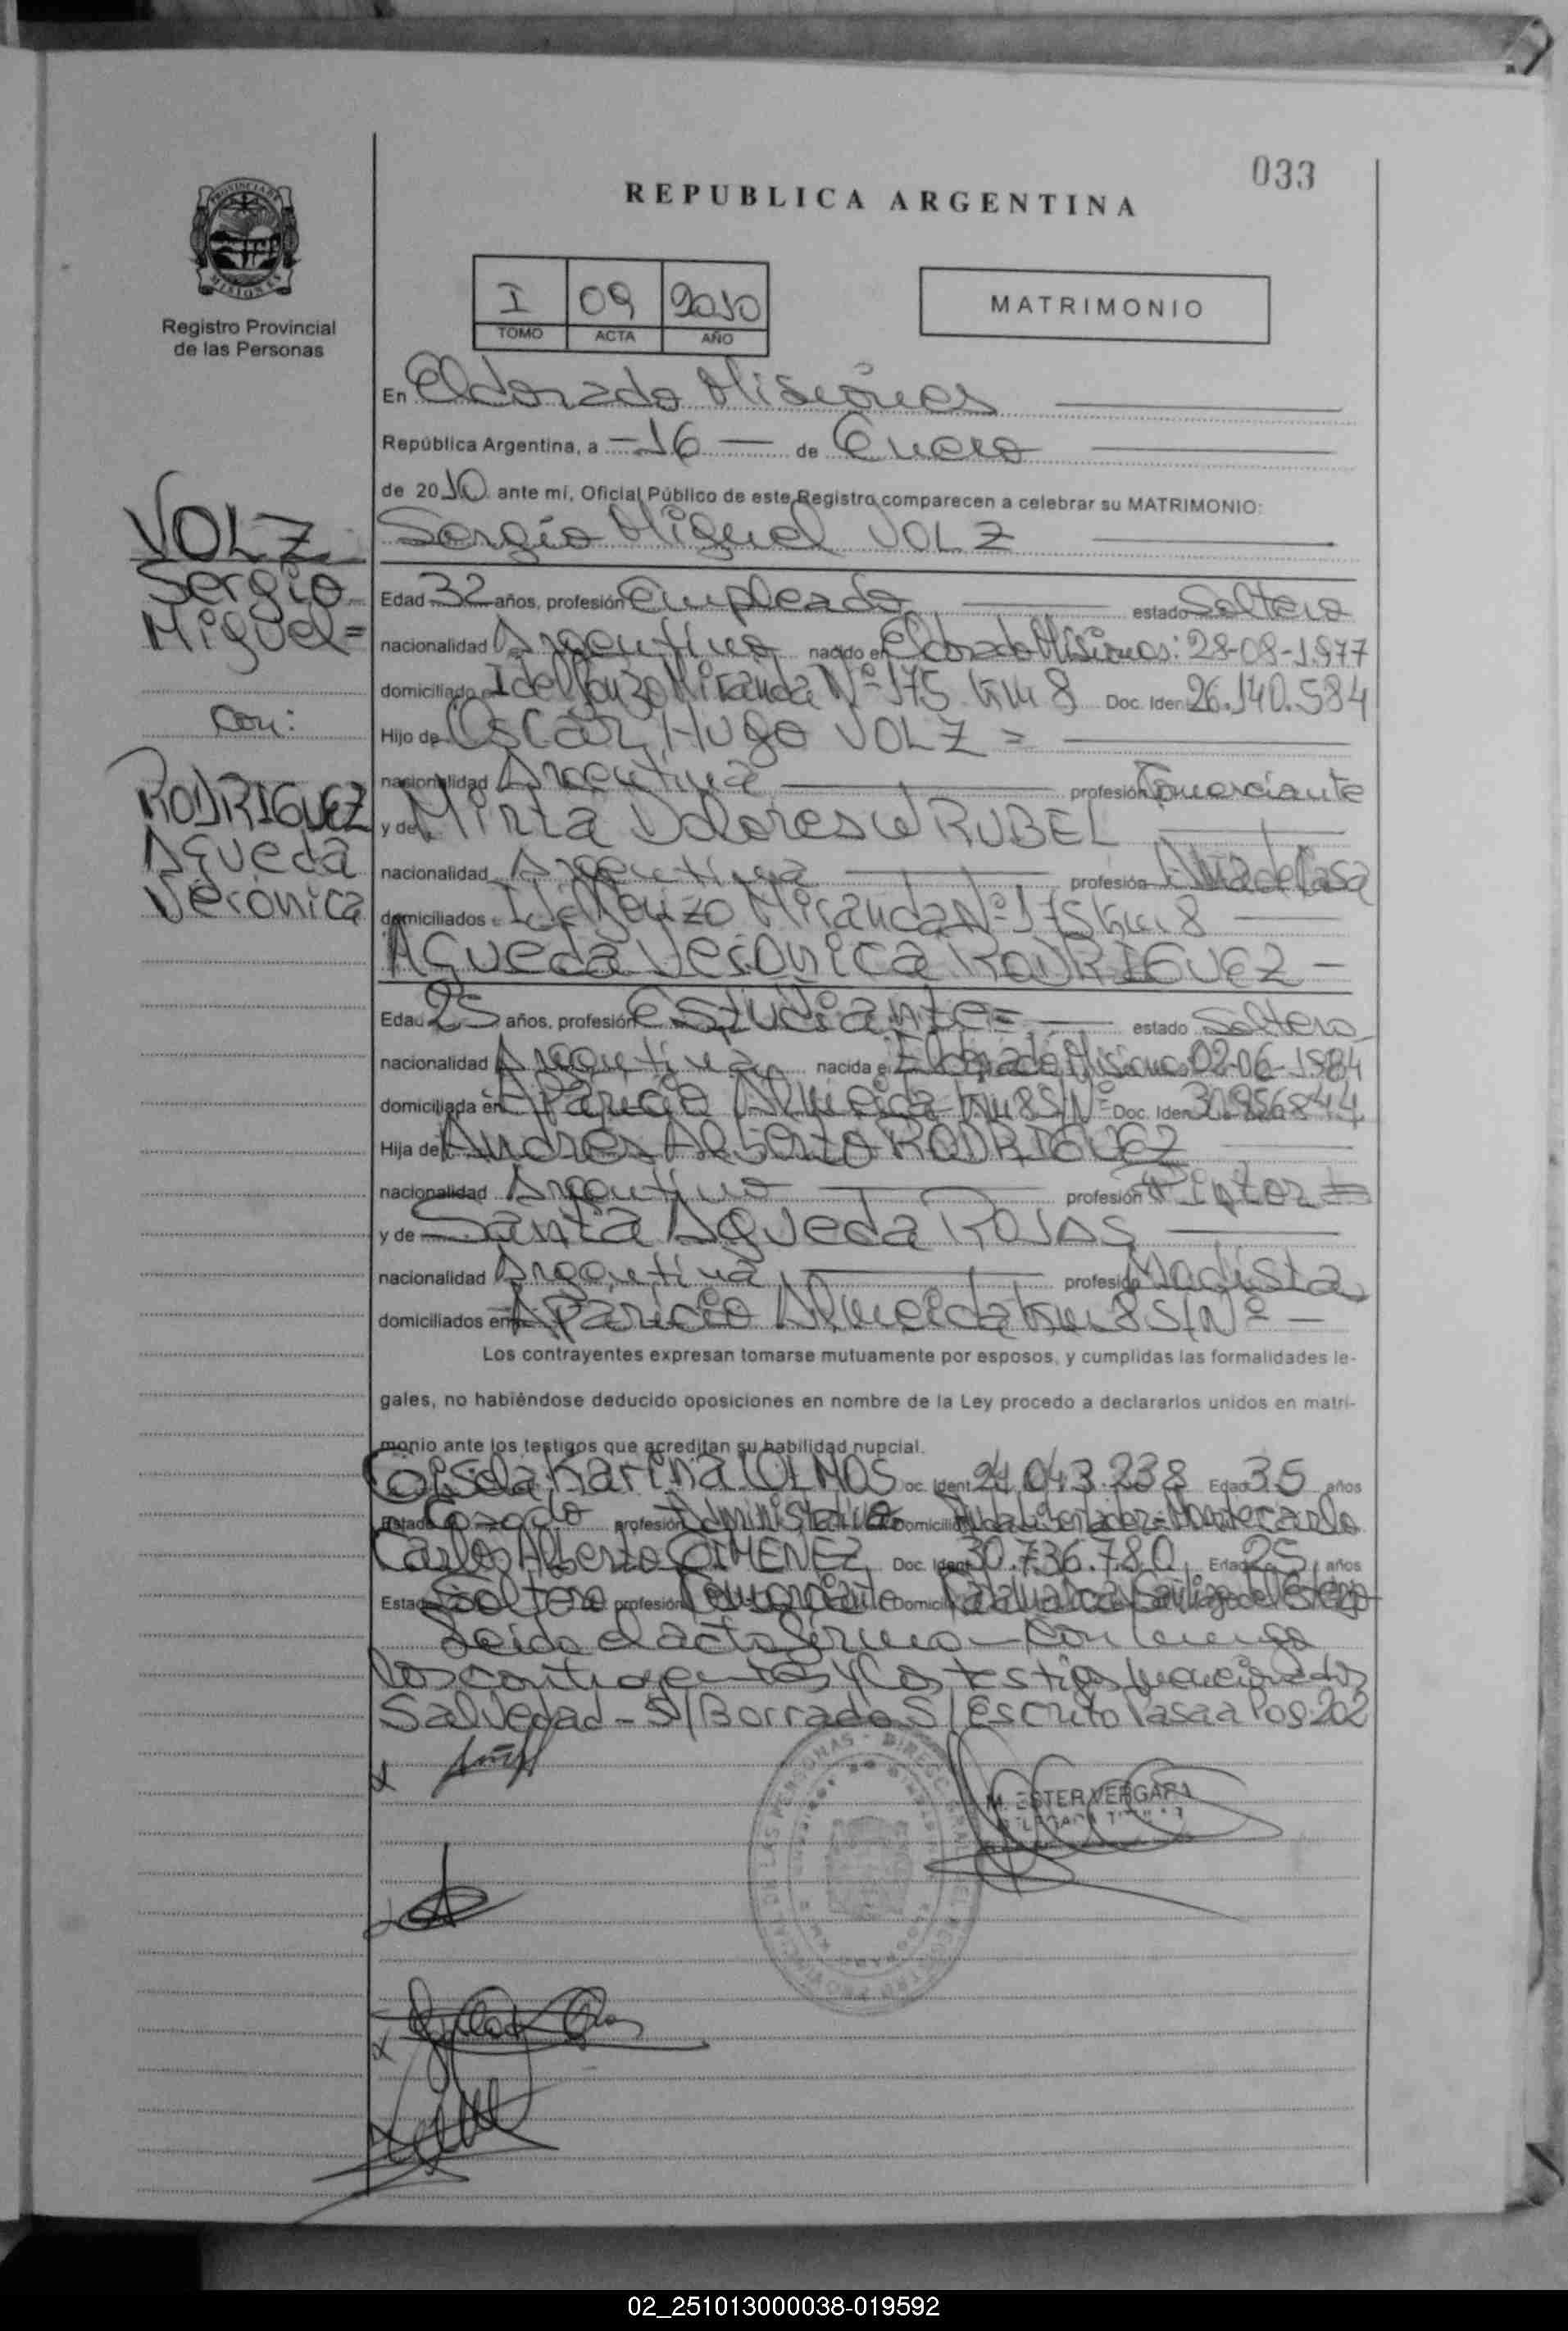 033
REPUBLICA ARGENTINA
PROVINCIA DE MISIONES
Registro Provincial
de las Personas
I 09 2010
TOMO ACTA AÑO
MATRIMONIO
En Eldorado Misiones
República Argentina, a -16- de Enero
de 2010 ante mí, Oficial Público de este Registro comparecen a celebrar su MATRIMONIO:
VOLZ
Sergio
Miguel=
con:
RODRIGUEZ
Agueda
Verónica
Sergio Miguel VOLZ
Edad 32 años, profesión Empleado estado Soltero
nacionalidad Argentino nacido en Eldorado Misiones: 28-08-1977
domiciliado en Idelfonzo Miranda Nº 175 Km 8 Doc. Iden 26.140.584
Hijo de Oscar Hugo VOLZ =
nacionalidad Argentina profesión Comerciante
y de Mirta Dolores WRUBEL
nacionalidad Argentina profesión Ama de Casa
domiciliados e Idelfonzo Miranda Nº 175 Km. 8
Agueda Verónica RODRIGUEZ -
Edad 25 años, profesión Estudiante= estado Soltera
nacionalidad Argentina nacida e Eldorado Misiones 02-06-1984
domiciliada en Aparicio Almeida Km 8 S/Nº Doc. Iden 30.956.844
Hija de Andres Alberto RODRIGUEZ
nacionalidad Argentino profesión Pintor =
y de Santa Agueda ROJAS
nacionalidad Argentina profesión Modista
domiciliados en Aparicio Almeida Km 8 S/Nº -
Los contrayentes expresan tomarse mutuamente por esposos, y cumplidas las formalidades le-
gales, no habiéndose deducido oposiciones en nombre de la Ley procedo a declararlos unidos en matri-
monio ante los testigos que acreditan su habilidad nupcial.
Gisela Karina OLMOS Doc. Ident 24.043.238 Edad 35 años
Estado Casado profesión Administrativa Domicilio Avda Libertador= Montecarlo
Carlos Alberto GIMENEZ Doc. Ident 30.736.780 Edad 25 años
Estado Soltero profesión Comerciante Domicilio Santiago del Estero
Leido el acto firman - conmigo
los contrayentes y los testigos mencionados
Salvedad - S/Borrado S/Escrito Pasa a Pog. 202
M. ESTER VERGARA
02_251013000038-019592